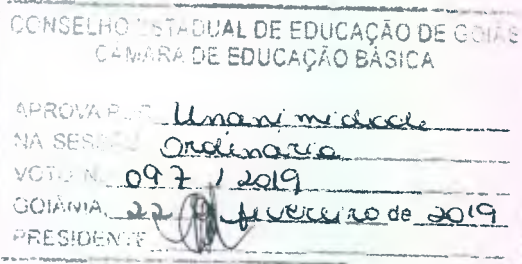 CONSELHO ESTADUAL DE EDUCAÇÃO DE GOIÁS
CÂMARA DE EDUCAÇÃO BÁSICA
APROVA POR Unanimidade
NA SESSÃO Ordinaria
VOTO N. 097 / 2019
GOIÂNIA, 22 de fevereiro de 2019
PRESIDENTE